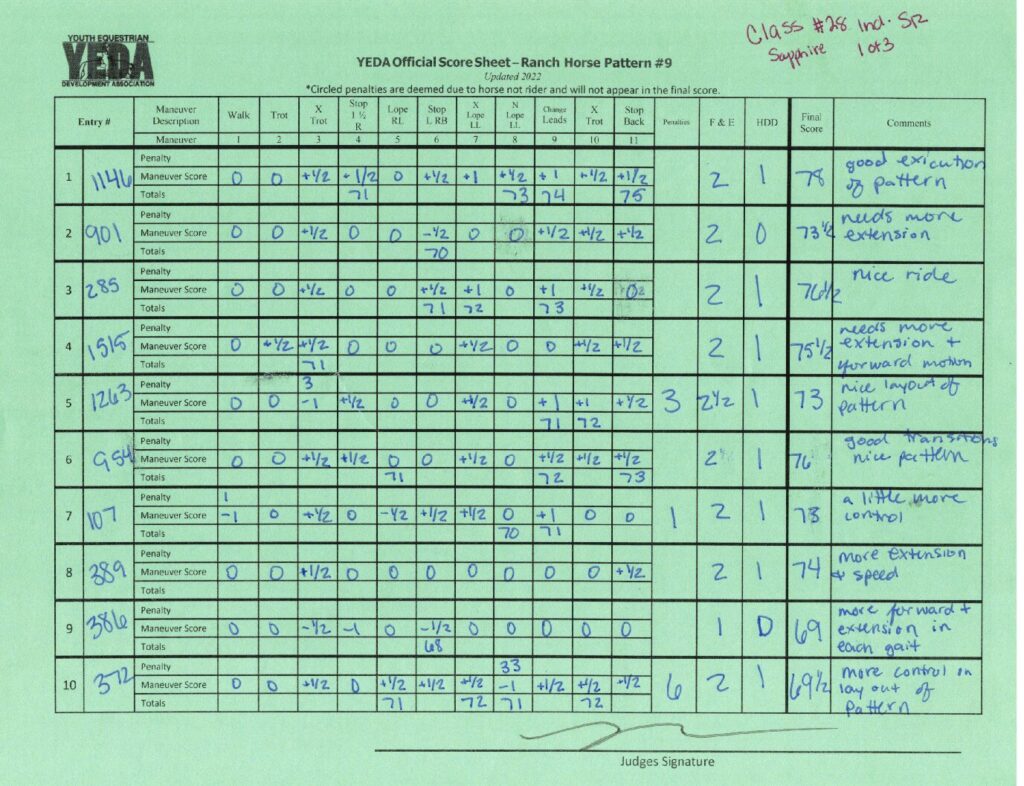 Class #28 Ind. SR
Sapphire 1 of 3
YOUTH EQUESTRIAN
YEDA
DEVELOPMENT ASSOCIATION
YEDA Official Score Sheet – Ranch Horse Pattern #9
Updated 2022
*Circled penalties are deemed due to horse not rider and will not appear in the final score.
Entry # Maneuver Description Walk Trot X Trot Stop 1 ½ R Lope RL Stop L RB X Lope LL N Lope LL Change Leads X Trot Stop Back Penalties F & E HDD Final Score Comments
Maneuver 1 2 3 4 5 6 7 8 9 10 11
Penalty
1 1146 Maneuver Score 0 0 +1/2 +1/2 0 +1/2 +1 +1/2 +1 +1/2 +1/2 2 1 78 good exicution of pattern
Totals 71 73 74 75
Penalty
2 901 Maneuver Score 0 0 +1/2 0 0 -1/2 0 0 +1/2 +1/2 +1/2 2 0 73 1/2 needs more extension
Totals 70
Penalty
3 285 Maneuver Score 0 0 +1/2 0 0 +1/2 +1 0 +1 +1/2 0 2 1 76 1/2 nice ride
Totals 71 72 73
Penalty
4 1515 Maneuver Score 0 +1/2 +1/2 0 0 0 +1/2 0 0 +1/2 +1/2 2 1 75 1/2 needs more extension + forward motion
Totals 71
Penalty 3
5 1263 Maneuver Score 0 0 -1 +1/2 0 0 +1/2 0 +1 +1 +1/2 3 2 1/2 1 73 nice layout of pattern
Totals 71 72
Penalty
6 954 Maneuver Score 0 0 +1/2 +1/2 0 0 +1/2 0 +1/2 +1/2 +1/2 2 1 76 good transitions nice pattern
Totals 71 72 73
Penalty 1
7 107 Maneuver Score -1 0 +1/2 0 -1/2 +1/2 +1/2 0 +1 0 0 1 2 1 73 a little more control
Totals 70 71
Penalty
8 389 Maneuver Score 0 0 +1/2 0 0 0 0 0 0 0 +1/2 2 1 74 more extension + speed
Totals
Penalty
9 386 Maneuver Score 0 0 -1/2 -1 0 -1/2 0 0 0 0 0 1 0 69 more forward + extension in each gait
Totals 68
Penalty 33
10 372 Maneuver Score 0 0 +1/2 0 +1/2 +1/2 +1/2 -1 +1/2 +1/2 +1/2 6 2 1 69 1/2 more control on lay out of pattern
Totals 71 72 71 72
Judges Signature